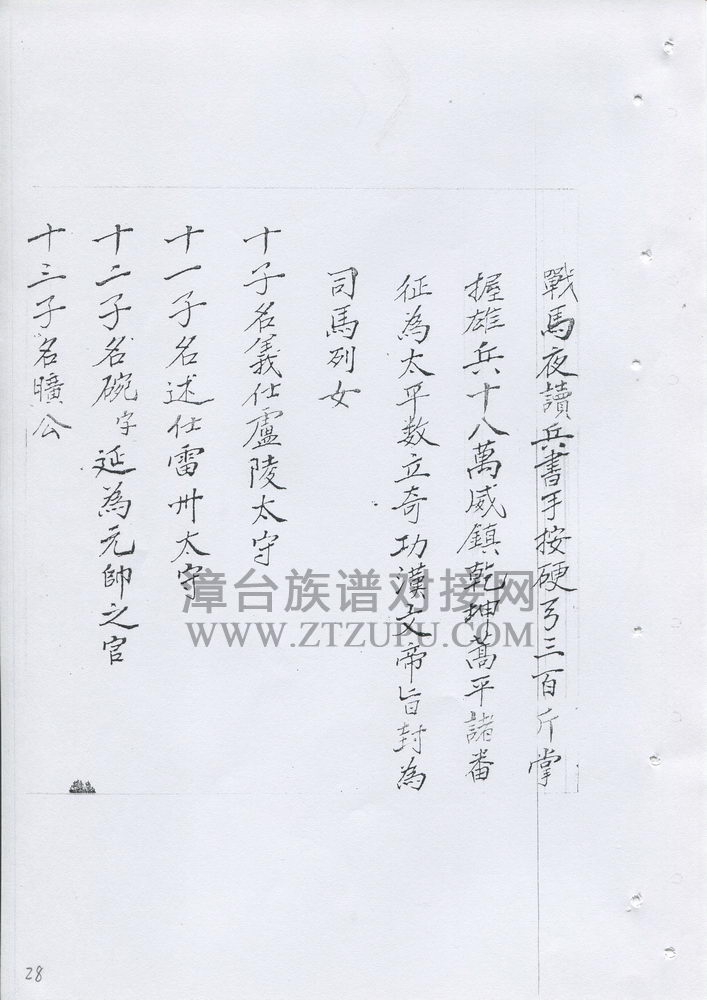 戰馬夜讀兵書手按硬弓三百斤掌
握雄兵十八萬威鎮乾坤蒿平諸番
征為太平数立奇功漢文帝旨封為
司馬列女
十子名義仕盧陵太守
十一子名述仕雷卅太守
十二子名碗字延為元帥之官
十三子名曠公
漳台族谱对接网
WWW.ZTZUPU.COM
28